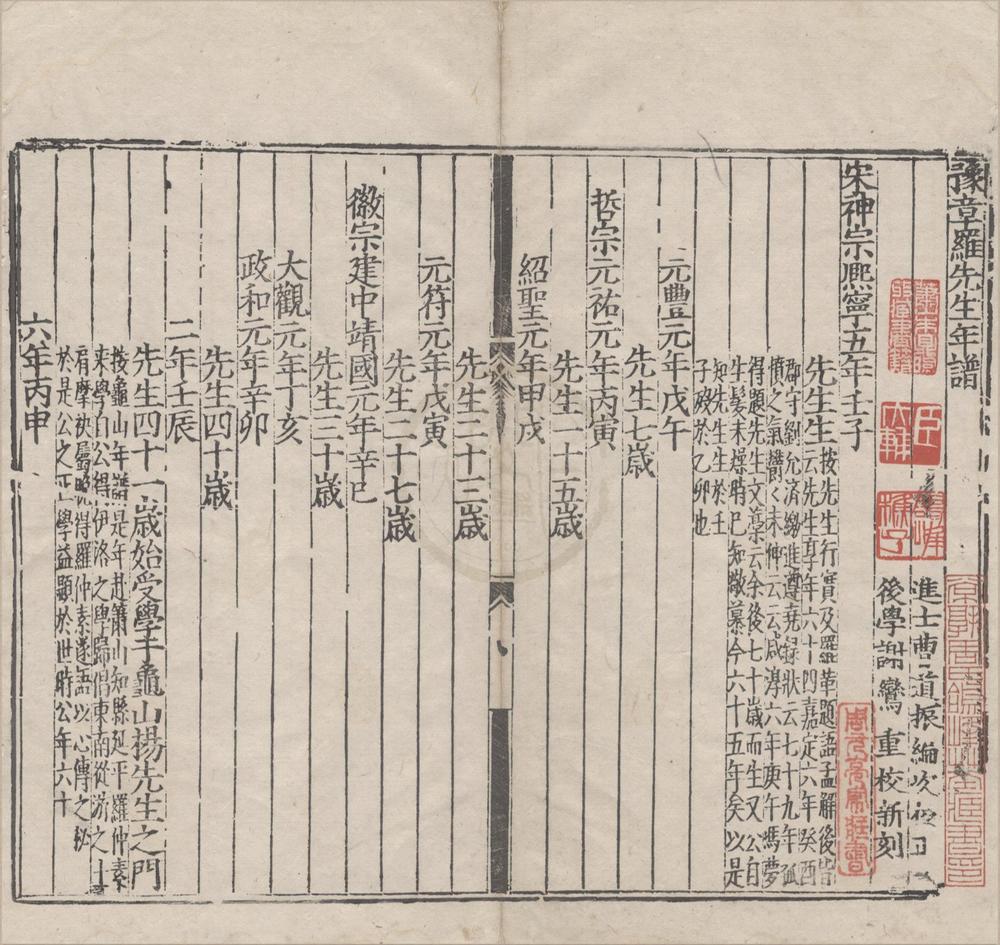 豫章羅先生年譜
進士曹道振編次校
後學謝鸞重校新刻
宋神宗熙寧五年壬子
先生生
按先生行實及羅革題語孟解後皆
云先生享年六十四嘉定六年癸酉
郡守劉允濟繳進遵堯録狀云七十九年孤
憤之氣欝〻未伸云云咸淳六年庚午馮夢
得題先生文藁云余後七十歲而生又公自
牛髮未燥時已知敬慕今六十五年矣以是
知先生生於壬
子歿於乙卯也
元豐元年戊午
先生七歲
哲宗元祐元年丙寅
先生一十五歲
紹聖元年甲戌
先生二十三歲
元符元年戊寅
先生二十七歲
徽宗建中靖國元年辛巳
先生三十歲
大觀元年丁亥
政和元年辛卯
先生四十歲
二年壬辰
先生四十一歲始受學于龜山楊先生之門
按龜山年譜是年赴蕭山知縣延平羅仲素
來學自公得伊洛之學歸倡東南從游之士
肩摩袂屬晚得羅仲素遂語以心傳之秘
於是公之正學益顯於世時公年六十
六年丙申